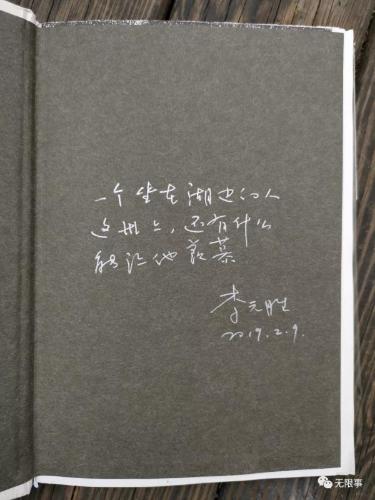 一个坐在湖边的人
这世上，还有什么
能让他羡慕
李元胜
2019.2.9.
无限事